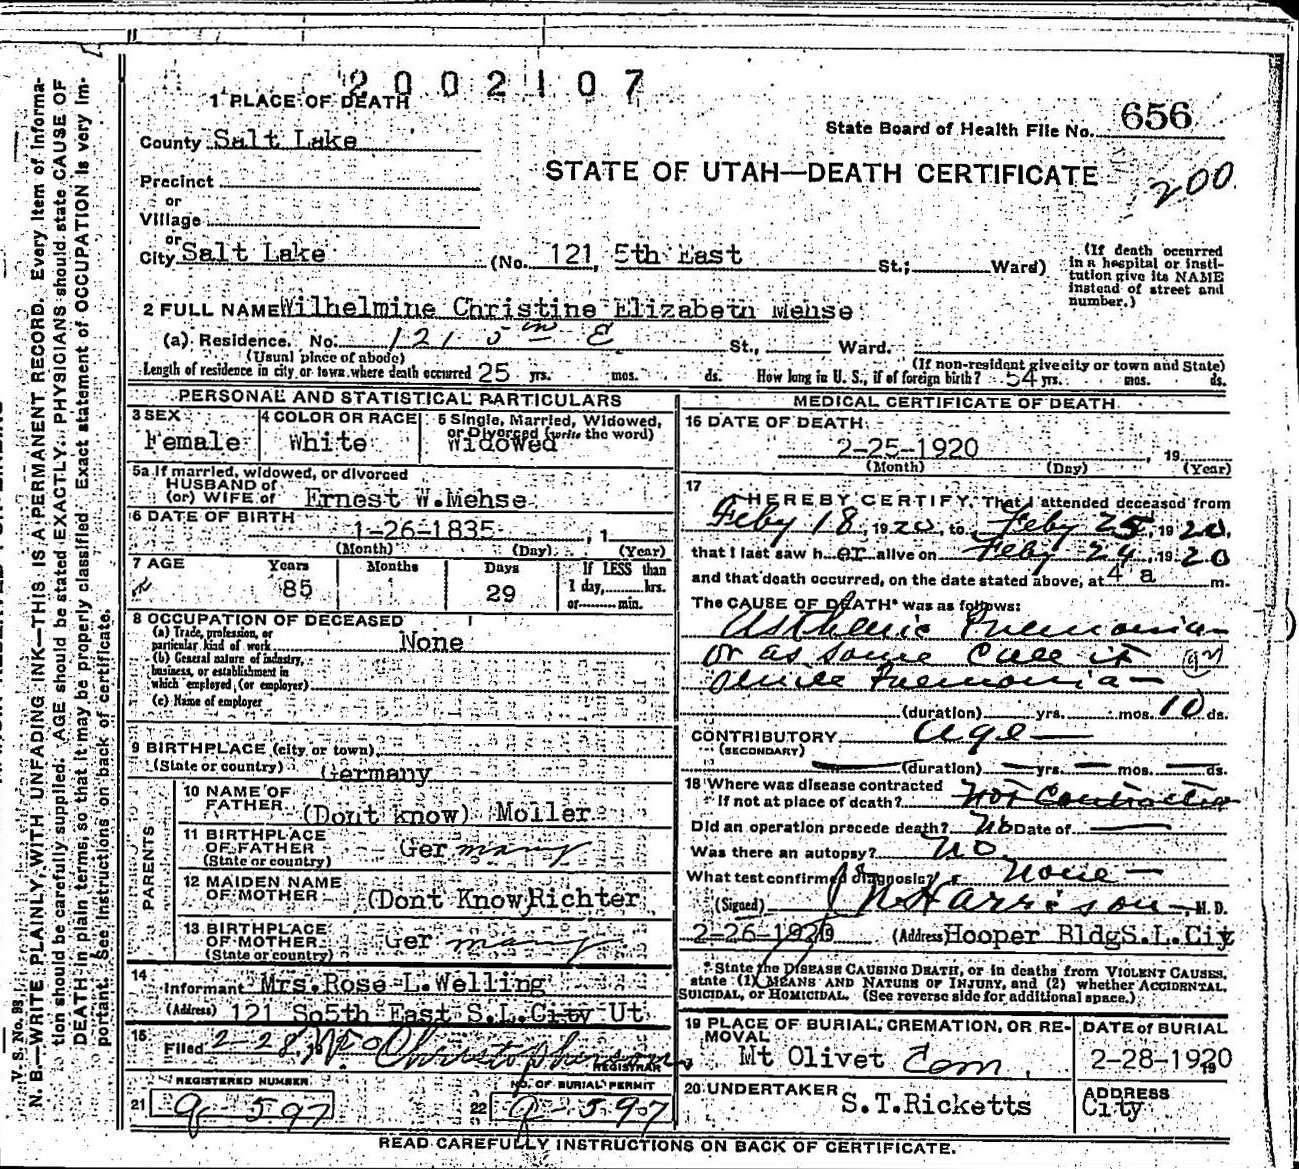 2002107
1 PLACE OF DEATH
State Board of Health File No. 656
County Salt Lake
STATE OF UTAH—DEATH CERTIFICATE
200
Precinct
or
Village
or
City Salt Lake (No. 121, 5th East St.; Ward)
(If death occurred in a hospital or insti-
tution give its NAME
instead of street and
number.)
2 FULL NAME Wilhelmine Christine Elizabeth Mehse
(a) Residence. No. 121 5th E St., Ward.
(Usual place of abode) (If non-resident give city or town and State)
Length of residence in city or town where death occurred 25 yrs. mos. ds. How long in U. S., if of foreign birth? 54 yrs. mos. ds.
PERSONAL AND STATISTICAL PARTICULARS
3 SEX
Female
4 COLOR OR RACE
White
5 Single, Married, Widowed,
or Divorced (write the word)
Widowed
5a If married, widowed, or divorced
HUSBAND of
(or) WIFE of Ernest W.Mehse
6 DATE OF BIRTH 1-26-1835, 1
(Month) (Day) (Year)
7 AGE Years Months Days If LESS than
85 29 1 day, hrs.
or min.
8 OCCUPATION OF DECEASED
(a) Trade, profession, or
particular kind of work None
(b) General nature of industry,
business, or establishment in
which employed, (or employer)
(c) Name of employer
9 BIRTHPLACE (city or town)
(State or country) Germany
PARENTS
10 NAME OF
FATHER (Dont know) Moller
11 BIRTHPLACE
OF FATHER Germany
(State or country)
12 MAIDEN NAME
OF MOTHER (Dont Know)Richter
13 BIRTHPLACE
OF MOTHER Germany
(State or country)
14
Informant Mrs.Rose L.Welling
(Address) 121 So5th East S.L.City Ut
15
Filed 2-28, Christopherson
REGISTRAR
REGISTERED NUMBER
21 9-597
NO. OF BURIAL PERMIT
22 9-597
MEDICAL CERTIFICATE OF DEATH
16 DATE OF DEATH
2-25-1920, 19
(Month) (Day) (Year)
17
I HEREBY CERTIFY, That I attended deceased from
Feby 18, 1920, to Feby 25, 1920,
that I last saw her alive on Feby 24, 1920
and that death occurred, on the date stated above, at 4 a m.
The CAUSE OF DEATH* was as follows:
Asthenic Pneumonia
or as some call it
Senile Pneumonia—
(duration) yrs. mos. 10 ds.
CONTRIBUTORY Age—
(SECONDARY)
(duration) yrs. mos. ds.
18 Where was disease contracted
If not at place of death? Not Contracted
Did an operation precede death? No Date of
Was there an autopsy? No
What test confirmed diagnosis? None—
(Signed) Harrison, M. D.
2-26-1920 (Address Hooper BldgS.L.Ciy
* State the DISEASE CAUSING DEATH, or in deaths from VIOLENT CAUSES,
state (1) MEANS AND NATURE OF INJURY, and (2) whether ACCIDENTAL,
SUICIDAL, or HOMICIDAL. (See reverse side for additional space.)
19 PLACE OF BURIAL, CREMATION, OR RE-
MOVAL
Mt Olivet Cem.
DATE of BURIAL
2-28-1920
19
20 UNDERTAKER
S.T.Ricketts
ADDRESS
City
READ CAREFULLY INSTRUCTIONS ON BACK OF CERTIFICATE.
V. S. No. 98
N. B.—WRITE PLAINLY, WITH UNFADING INK—THIS IS A PERMANENT RECORD. Every item of informa-
tion should be carefully supplied. AGE should be stated EXACTLY. PHYSICIANS should state CAUSE OF
DEATH in plain terms, so that it may be properly classified. Exact statement of OCCUPATION is very im-
portant. See instructions on back of certificate.